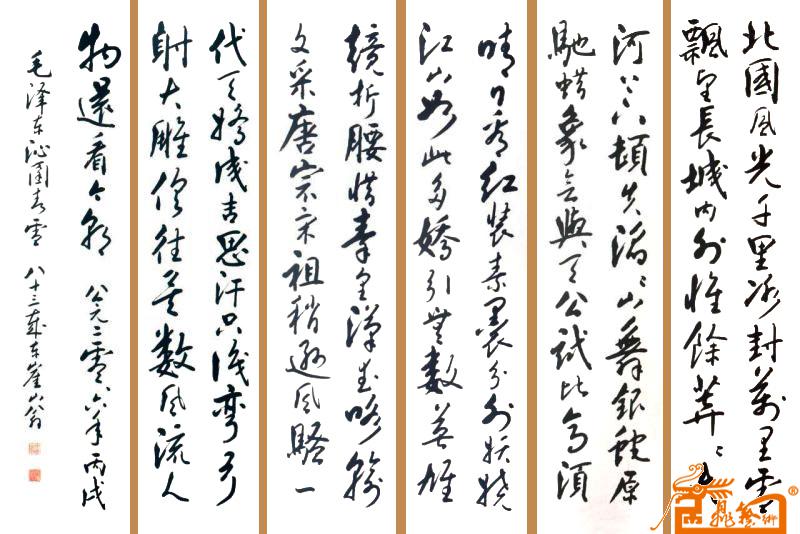 北國風光千里冰封萬里雪
飄望長城内外惟餘莽々大
河上下頓失滔々山舞銀蛇原
馳蜡象欲與天公試比高須
晴日看紅裝素裹分外妖嬈
江山如此多嬌引無數英雄
競折腰惜秦皇漢武略輸
文采唐宗宋祖稍遜風騷一
代天嬌成吉思汗只識彎弓
射大雕俱往矣數風流人
物還看今朝 公元二零々六年丙戌
毛泽东沁園春雪 八十三歲东崖山翁